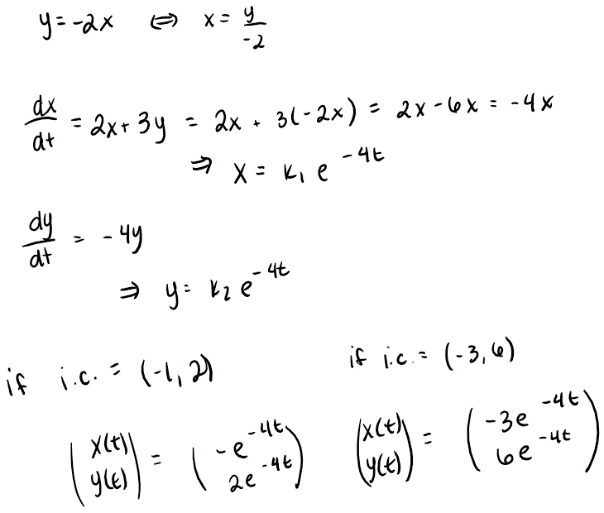 y = -2x ⇔ x = y/-2
dx/dt = 2x + 3y = 2x + 3(-2x) = 2x - 6x = -4x
⇒ x = k₁ e^{-4t}
dy/dt = -4y
⇒ y = k₂ e^{-4t}
if i.c. = (-1, 2) if i.c. = (-3, 6)
(x(t) y(t)) = (-e^{-4t} 2e^{-4t}) (x(t) y(t)) = (-3e^{-4t} 6e^{-4t})